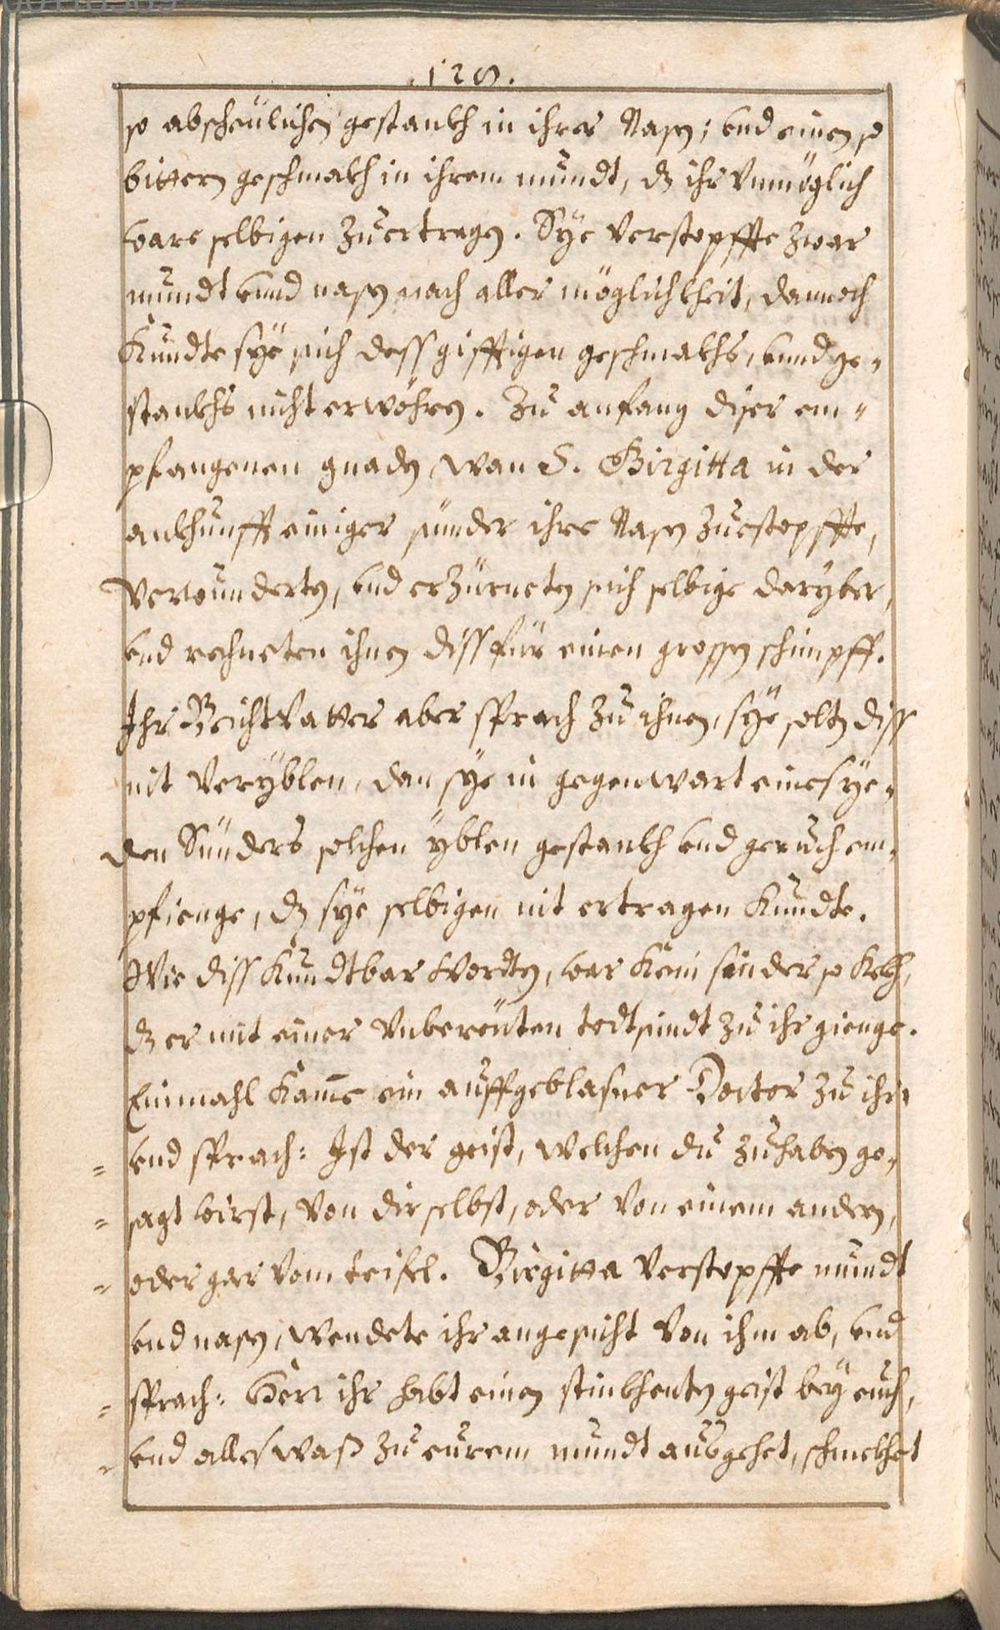 .128.
so abscheülichen gestankh in ihrer Nasen; vnd einen so
bittern geschmakh in ihrem mundt, dz ihr Vnmöglich
ware selbigen zuertragen. Sÿe Verstopffte zwar
mundt vnnd nasen nach aller möglichkheit, dannoch
Kundte sÿe sich dess gifftigen geschmakhs, vnnd ge-
stankhs nicht erwöhren. Zu anfang diser em-
pfangenen gnaden, wan S. Birgitta in der
ankhunfft einiger sünder ihre Nasen zuestopffte,
Verwunderten, vnd erzürneten sich selbige darÿber,
vnd rechneten ihnen diss für einen grossen schimpff.
Ihr Beichtvatter aber sprach zu ihnen, sÿe solten diss
nit Verÿblen, dan sÿe in gegenwart eines ÿe-
den Sünders solchen ÿblen gestankh vnd geruch em-
pfienge, dz sÿe selbigen nit ertragen Kundte.
Wie diss Kundtbar Worden, war Kein sünder so Kekh,
dz er mit einer Vnbereüten todtsindt zu ihr gienge.
Einmahl Kame ein auffgeblasner Doctor zu ihr,
vnd sprach: Ist der geist, welchen du zuhaben ge-
sagt wirst, Von dir selbst, oder Von einem andern,
oder gar Vom teifel. Birgitta Verstopffte mundt
vnd nasen, wendete ihr angesicht Von ihm ab, vnd
sprach: Herr ihr habt einen stinkhenten geist beÿ euch,
vnd alles wass zu eurem mundt ausgehet, schmekhet